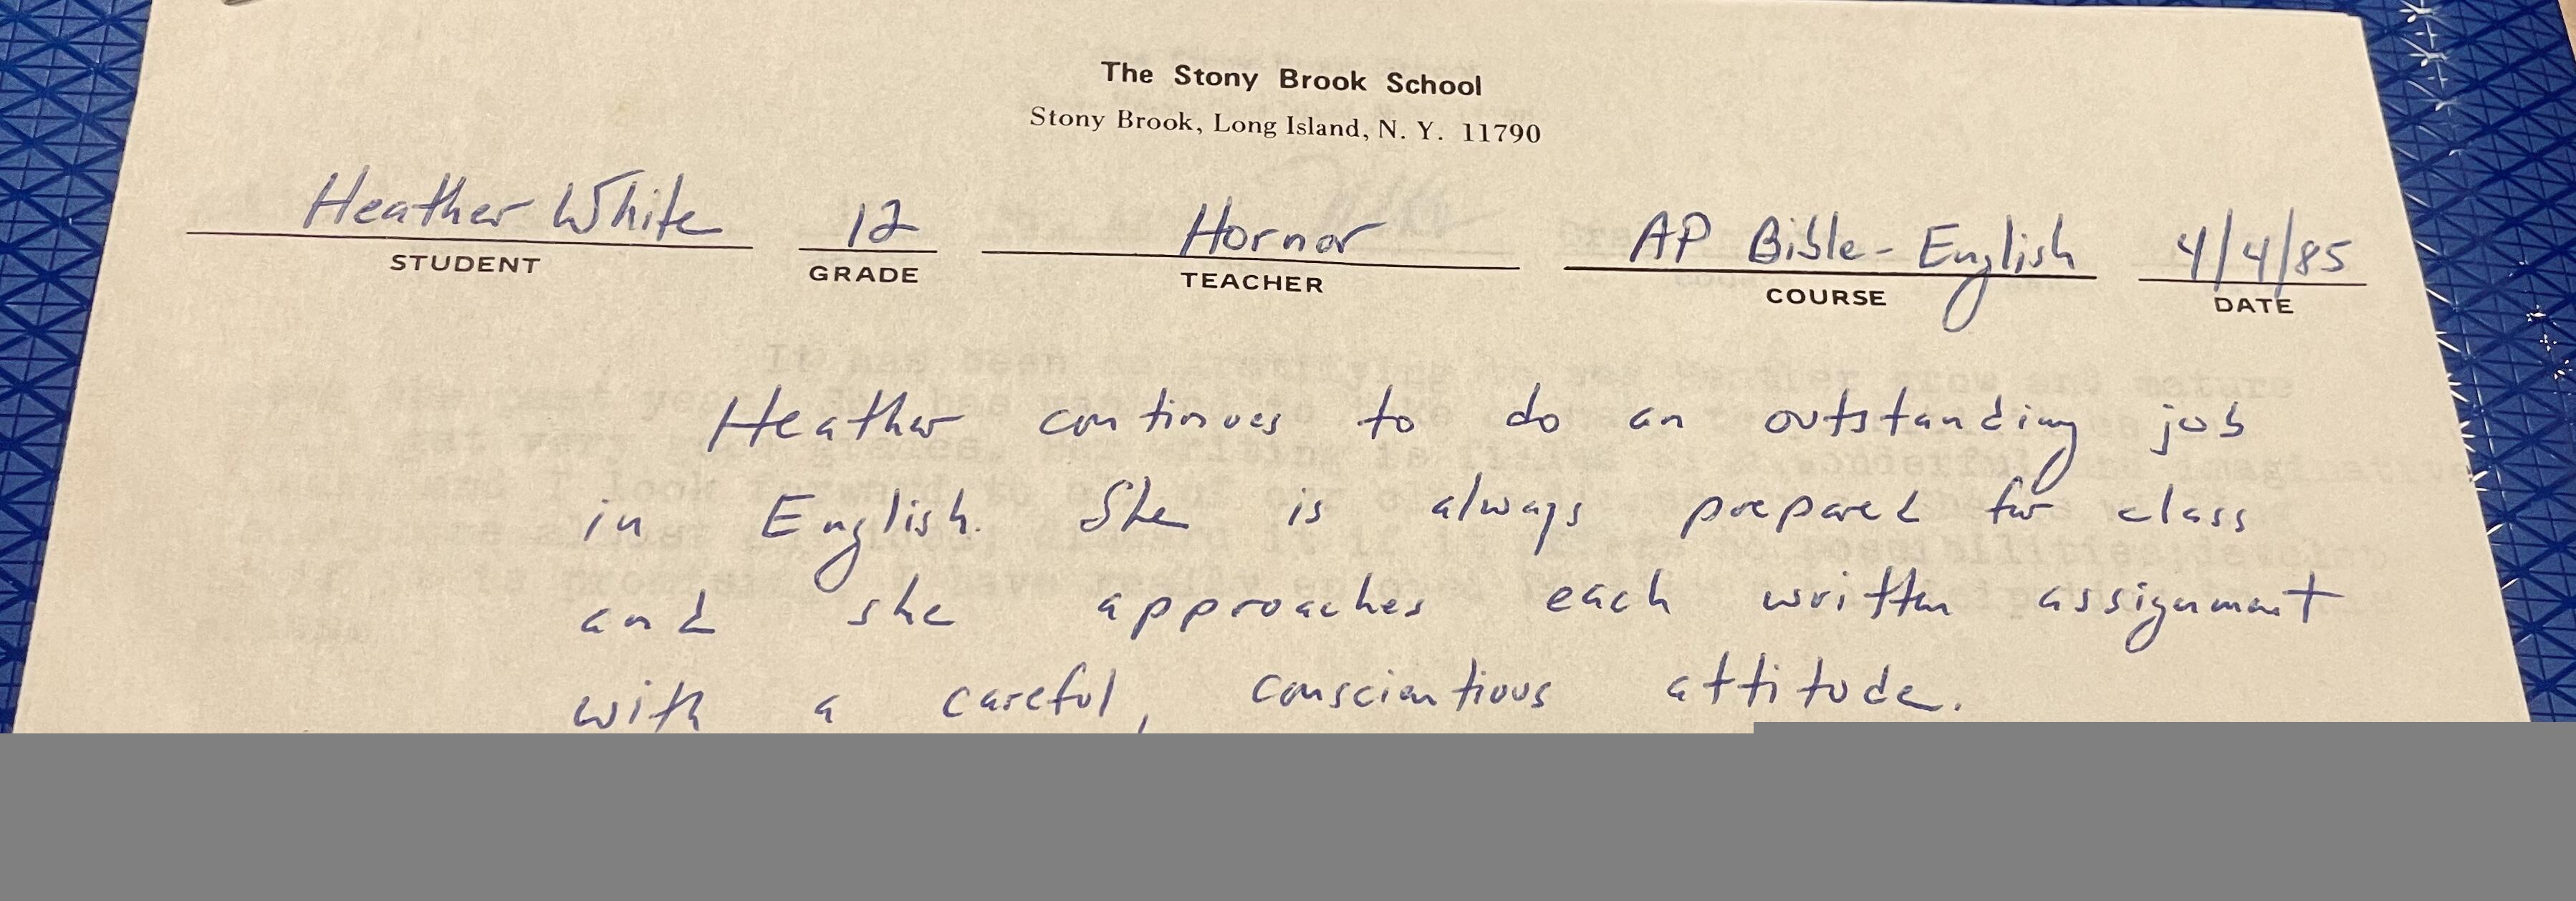 The Stony Brook School
Stony Brook, Long Island, N. Y. 11790
Heather White 12 Hornor AP Bible-English 4/4/85
STUDENT GRADE TEACHER COURSE DATE
Heather continues to do an outstanding job
in English. She is always prepared for class
and she approaches each written assignment
with a careful, conscientious attitude.